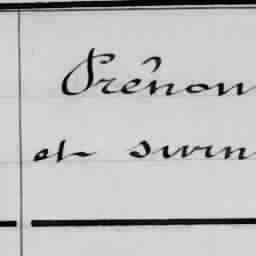 Prénom
et surn